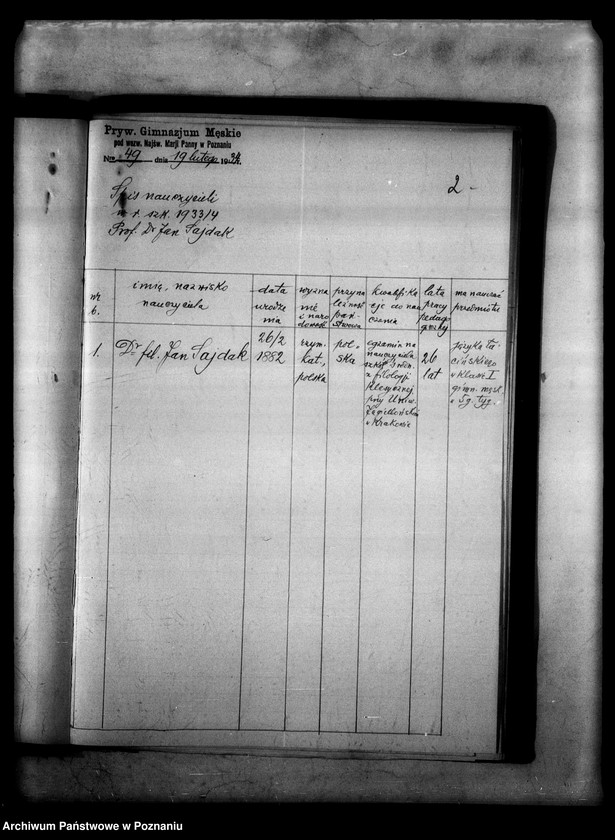 Pryw. Gimnazjum Męskie
pod wezw. Najśw. Marji Panny w Poznaniu
Nr. 49 dnia 19 lutego 1934.
2.-
Spis nauczycieli
w r. szk. 1933/4
Prof. Dr Jan Sajdak
nr b.
imię, nazwisko nauczyciela
data urodzenia
wyznanie i narodowość
przynależność państwowa
kwalifikacje do nauczania
lata pracy pedagogicznej
ma nauczać przedmiotu
1.
Dr fil. Jan Sajdak
26/2
1882
rzym.
kat.,
polska
polska
egzamin na
nauczyciela
szkół średn.
z filologji
klasycznej
przy Uniw.
Jagiellońskim
w Krakowie
26
lat
języka łacińskiego
w klasie I
gimn. męsk.
5 g. tyg.
Archiwum Państwowe w Poznaniu